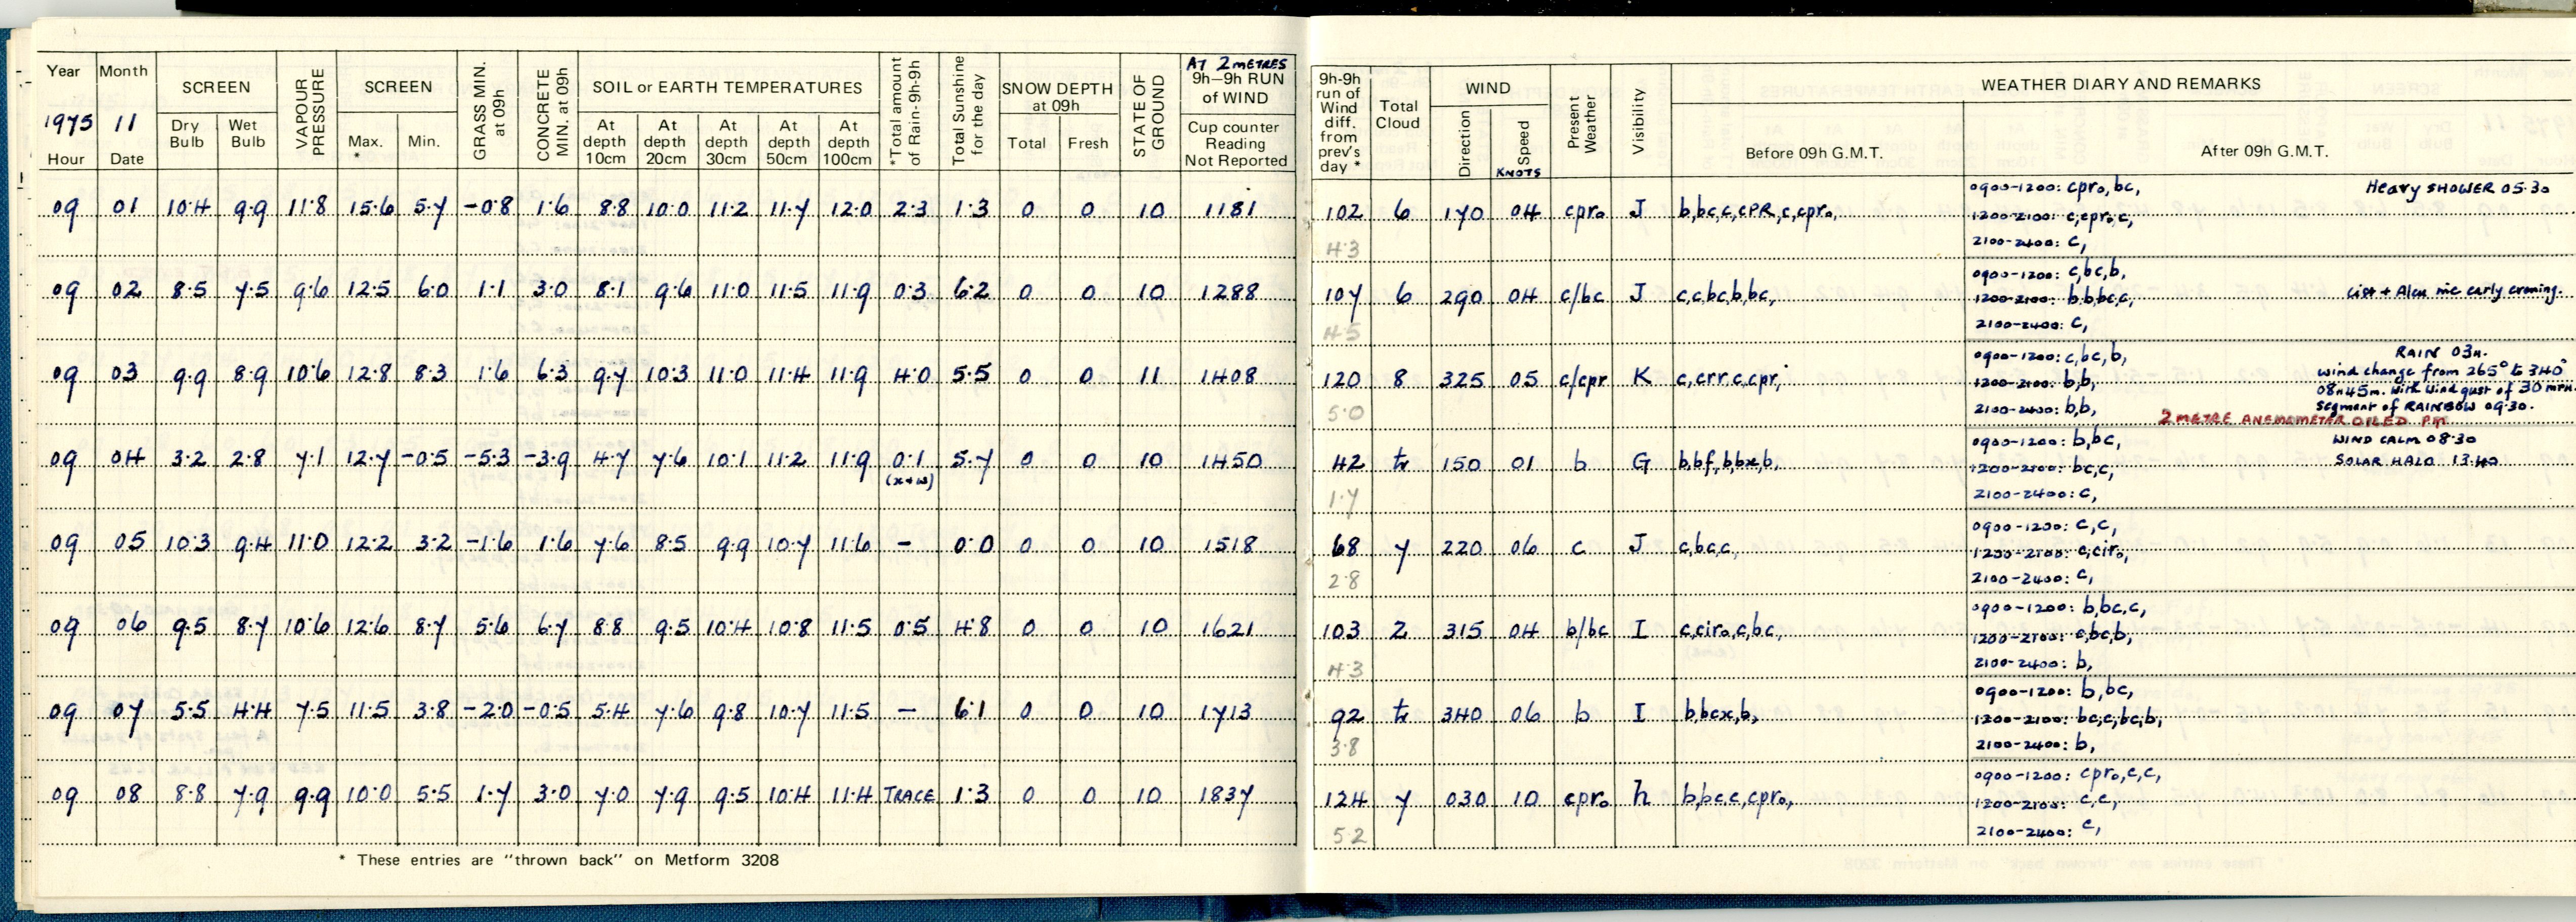 Year Month SCREEN VAPOUR PRESSURE SCREEN GRASS MIN. at 09h CONCRETE MIN. at 09h SOIL or EARTH TEMPERATURES *Total amount of Rain-9h-9h Total Sunshine for the day SNOW DEPTH at 09h STATE OF GROUND AT 2 METRES 9h–9h RUN of WIND
1975 11 Dry Bulb Wet Bulb Max. * Min. At depth 10cm At depth 20cm At depth 30cm At depth 50cm At depth 100cm Total Fresh Cup counter Reading Not Reported
Hour Date
9h-9h run of Wind diff. from prev's day * Total Cloud WIND Direction Speed KNOTS Present Weather Visibility WEATHER DIARY AND REMARKS
Before 09h G.M.T. After 09h G.M.T.
09 01 10.4 9.9 11.8 15.6 5.7 -0.8 1.6 8.8 10.0 11.2 11.7 12.0 2.3 1.3 0 0 10 1181
102 6 170 04 cpr₀ J b,bc,c,cPR,c,cpr₀,
43
0900-1200: cpr₀,bc,
1200-2100: c,cpr₀,c,
2100-2400: c,
Heavy SHOWER 05.30
09 02 8.5 7.5 9.6 12.5 6.0 1.1 3.0 8.1 9.6 11.0 11.5 11.9 0.3 6.2 0 0 10 1288
107 6 290 04 c/bc J c,c,bc,b,bc,
4.5
0900-1200: c,bc,b,
1200-2100: b,b,bc,c,
2100-2400: c,
early evening.
09 03 9.9 8.9 10.6 12.8 8.3 1.6 6.3 9.7 10.3 11.0 11.4 11.9 4.0 5.5 0 0 11 1408
120 8 325 05 c/cpr K c,crr,c,cpr,
5.0
0900-1200: c,bc,b,
1200-2100: b,b,
2100-2400: b,b,
RAIN 03H.
wind change from 265° to 340°
08H 45m. with wind gust of 30 mph.
Segment of RAINBOW 09.30.
2 METRE ANEMOMETER OILED PM
09 04 3.2 2.8 7.1 12.7 -0.5 -5.3 -3.9 4.7 7.6 10.1 11.2 11.9 0.1 5.7 0 0 10 1450
(x+w)
42 tr 150 01 b G b,bf,b,bx,b,
1.7
0900-1200: b,bc,
1200-2100: bc,c,
2100-2400: c,
WIND CALM 08.30
SOLAR HALO 13.40
09 05 10.3 9.4 11.0 12.2 3.2 -1.6 1.6 7.6 8.5 9.9 10.7 11.6 - 0.0 0 0 10 1518
68 7 220 06 c J c,bc,c,
2.8
0900-1200: c,c,
1200-2100: c,cir₀,
2100-2400: c,
09 06 9.5 8.7 10.6 12.6 8.7 5.6 6.7 8.8 9.5 10.4 10.8 11.5 0.5 4.8 0 0 10 1621
103 2 315 04 b/bc I c,cir₀,c,bc,
4.3
0900-1200: b,bc,c,
1200-2100: c,bc,b,
2100-2400: b,
09 07 5.5 4.4 7.5 11.5 3.8 -2.0 -0.5 5.4 7.6 9.8 10.7 11.5 - 6.1 0 0 10 1713
92 tr 340 06 b I b,bcx,b,
3.8
0900-1200: b,bc,
1200-2100: bc,c,bc,b,
2100-2400: b,
09 08 8.8 7.9 9.9 10.0 5.5 1.7 3.0 7.0 7.9 9.5 10.4 11.4 TRACE 1.3 0 0 10 1837
124 7 030 10 cpr₀ h b,bc,c,cpr₀,
5.2
0900-1200: cpr₀,c,c,
1200-2100: c,c,
2100-2400: c,
* These entries are "thrown back" on Metform 3208